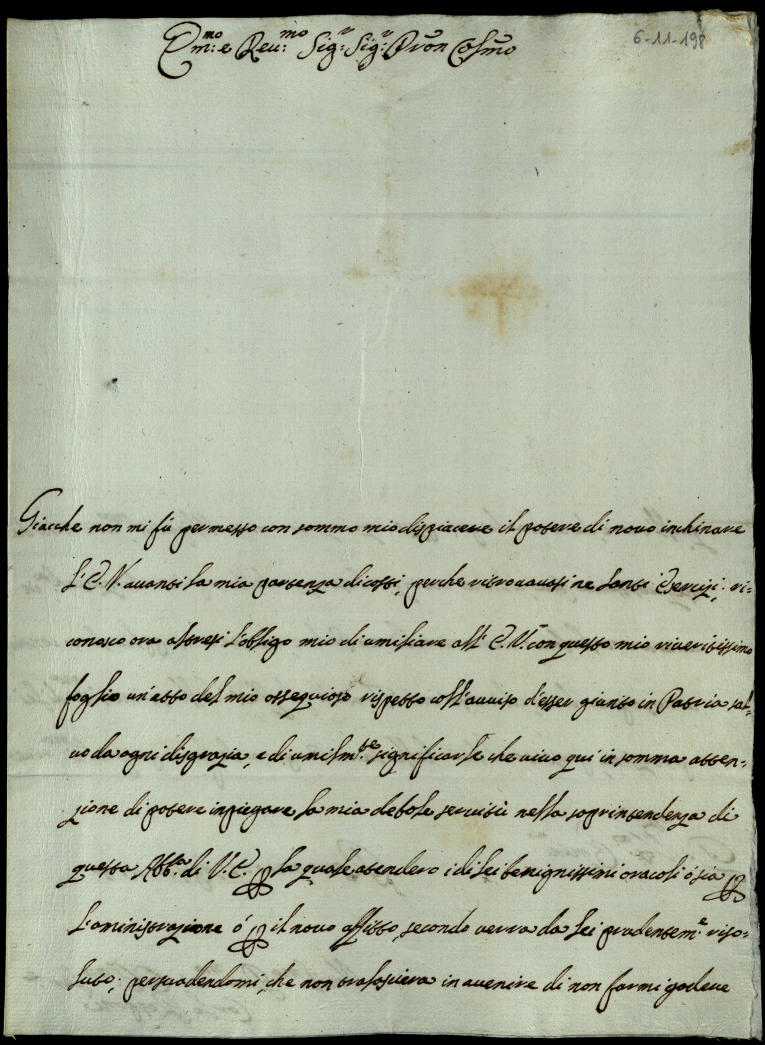 Em:mo e Reu:mo Sig:r Sig:r Pron Colmo
6-11-198
Giacche non mi fù permesso con sommo mio dispiacere il potere di novo inchinare
l'E. V. auanti la mia partenza di costì, perche ritrouauasi ne santi Esercizi; ri=
conosco ora altresi l'obligo mio di umiliare all'E. V. con questo mio riueritissimo
foglio un'atto del mio ossequioso rispetto coll'auuiso d'esser giunto in Patria sal=
uo da ogni disgrazia, e di umilm:te significarle che uiuo qui in somma atten=
zione di potere inpiegare la mia debole seruitù nella soprintendenza di
questa Abb:a di V. E. per la quale atendero i di lei benignissimi oracoli ó sia per
l'aministrazione ó per il nouo affitto, secondo uerra da lei prudentem:e riso=
luto; persuadendomi, che non tralasciera in auenire di non farmi godere